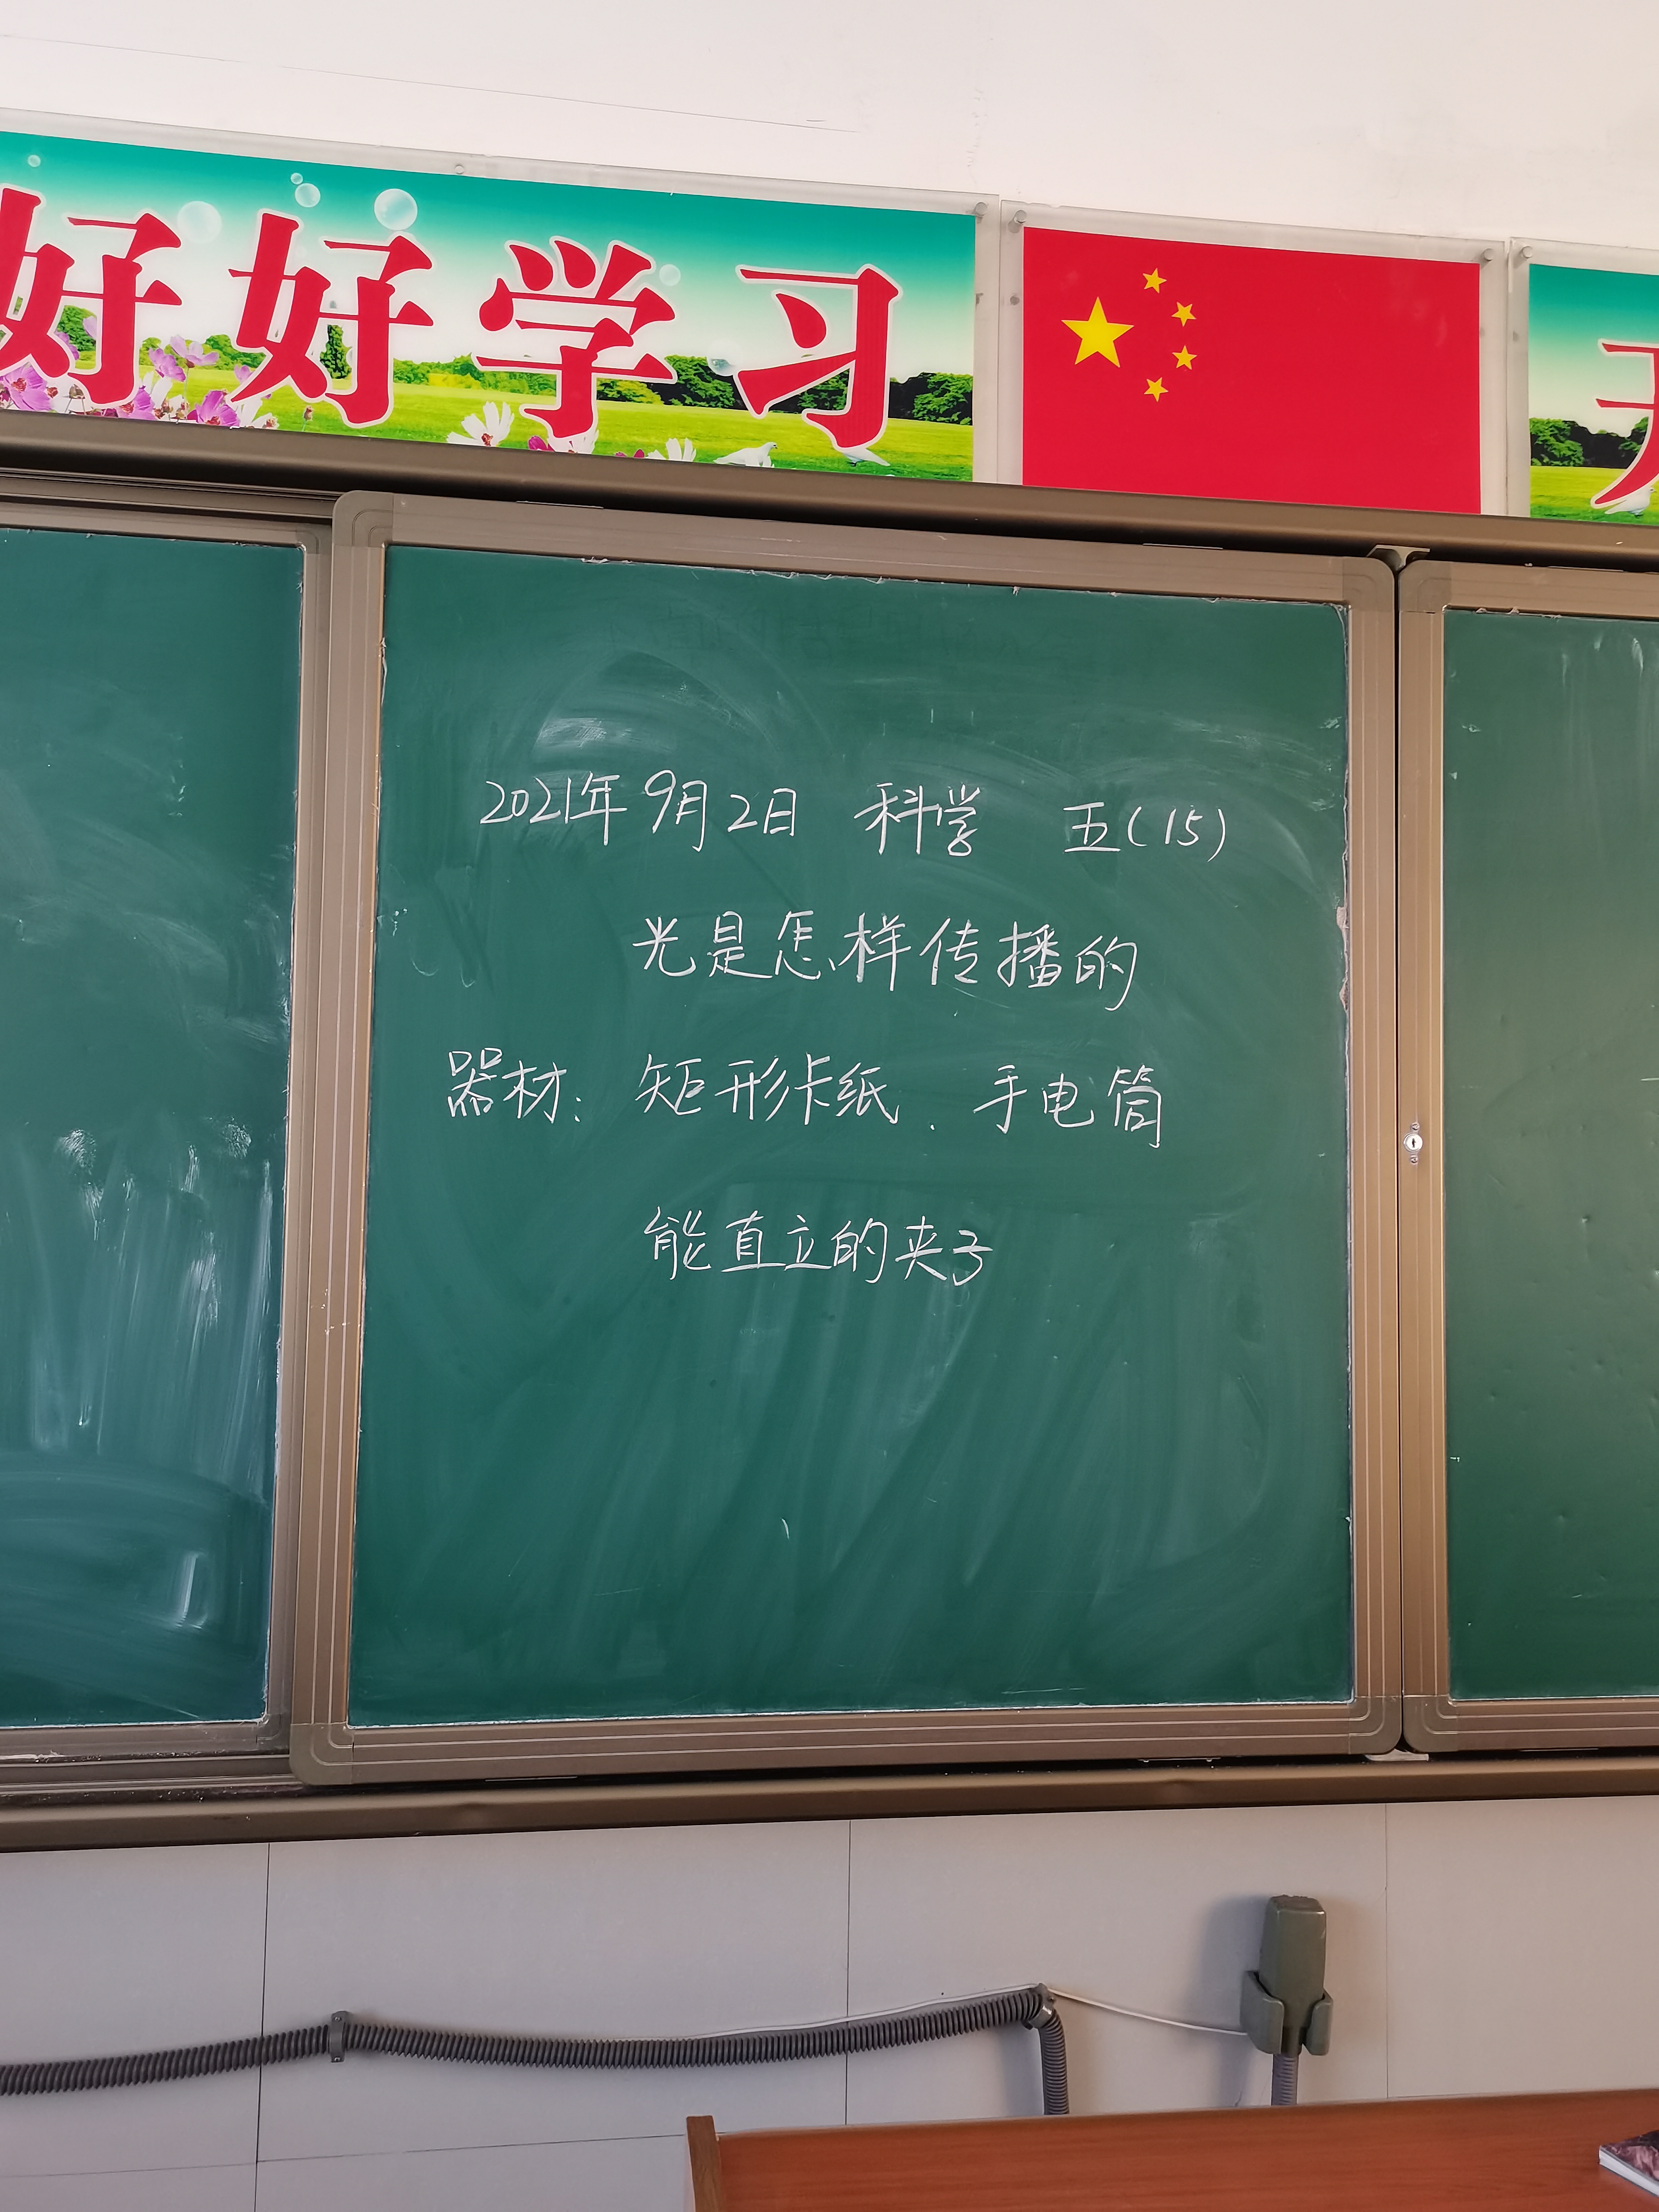 好好学习
2021年9月2日 科学 五(15)
光是怎样传播的
器材: 矩形卡纸、手电筒
能直立的夹子